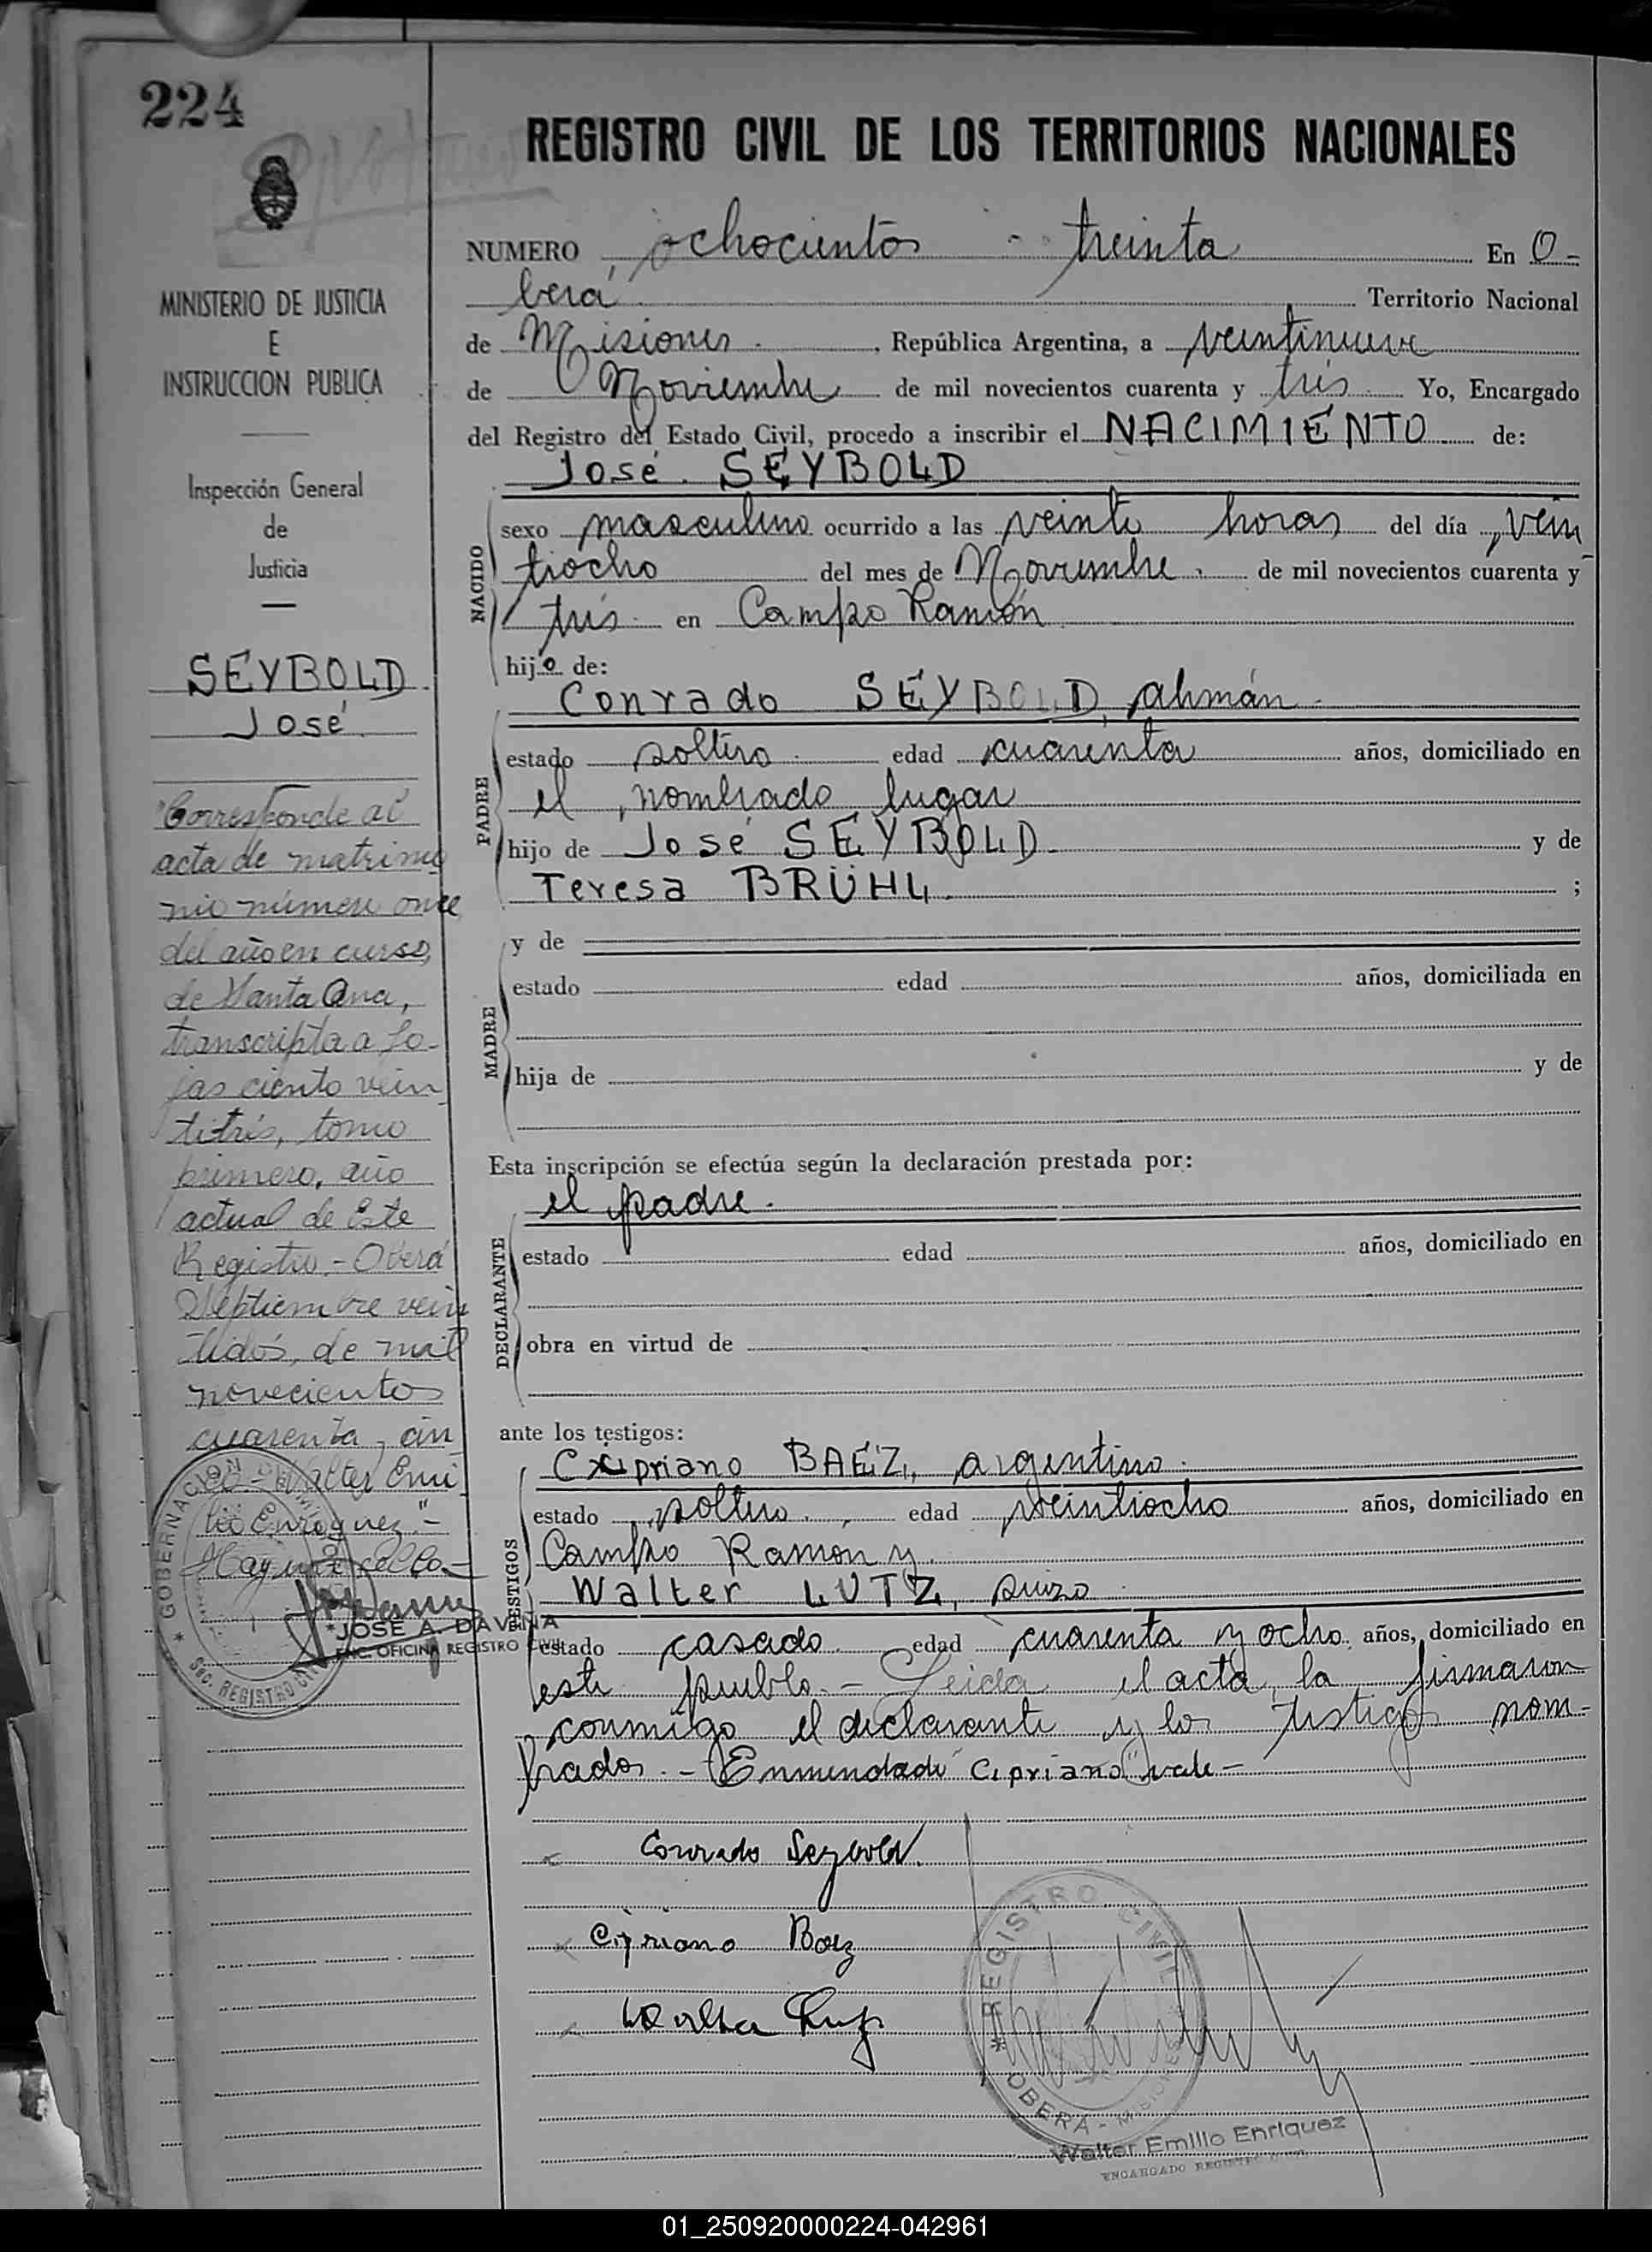 224
REGISTRO CIVIL DE LOS TERRITORIOS NACIONALES
NUMERO ochocientos treinta En O-
berá Territorio Nacional
de Misiones , República Argentina, a veintinueve
de Noviembre de mil novecientos cuarenta y tres Yo, Encargado
del Registro del Estado Civil, procedo a inscribir el NACIMIENTO de:
José SEYBOLD
NACIDO
sexo masculino ocurrido a las veinte horas del día vein
tiocho del mes de Noviembre de mil novecientos cuarenta y
tres en Campo Ramón
hijo de:
Conrado SEYBOLD, alemán
PADRE
estado soltero edad cuarenta años, domiciliado en
el nombrado lugar
hijo de José SEYBOLD y de
Teresa BRÜHL ;
MADRE
y de
estado edad años, domiciliada en
hija de y de
Esta inscripción se efectúa según la declaración prestada por:
el padre.
DECLARANTE
estado edad años, domiciliado en
obra en virtud de
ante los testigos:
Cipriano BAEZ, argentino
TESTIGOS
estado soltero, edad veintiocho años, domiciliado en
Campo Ramon y
Walter LUTZ, suizo
estado casado edad cuarenta y ocho años, domiciliado en
este pueblo.- Leida el acta, la firmaron
conmigo el declarante y los testigos nom-
brados.- Enmendado "Cipriano" vale-
Conrado Seybold
Cipriano Baez
Walter Lutz
REGISTRO CIVIL
OBERA - MISIONES
Walter Emilio Enriquez
ENCARGADO REGISTRO CIVIL
MINISTERIO DE JUSTICIA
E
INSTRUCCION PUBLICA
Inspección General
de
Justicia
SEYBOLD
José
"Corresponde al
acta de matrimo
nio número once
del año en curso,
de Santa Ana,
transcripta a fo-
jas ciento vein
titrés, tomo
primero, año
actual de Este
Registro.- Oberá
Septiembre vein
tidós, de mil
novecientos
cuarenta y cin
co.- Walter Emi
lio Enriquez".-
Hay un sello-
GOBERNACION
Sec. REGISTRO CIVIL
JOSE A. DAVENIA
ENC. OFICINA REGISTRO CIVIL
01_250920000224-042961